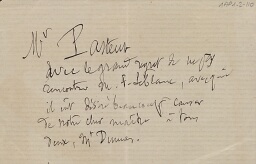 Mr Pasteur
avec le grand regret de ne pas
rencontrer M. F. Leblanc, avec qui
il eut désiré beaucoup causer
de notre cher maître à tous
deux, Mr Dumas.